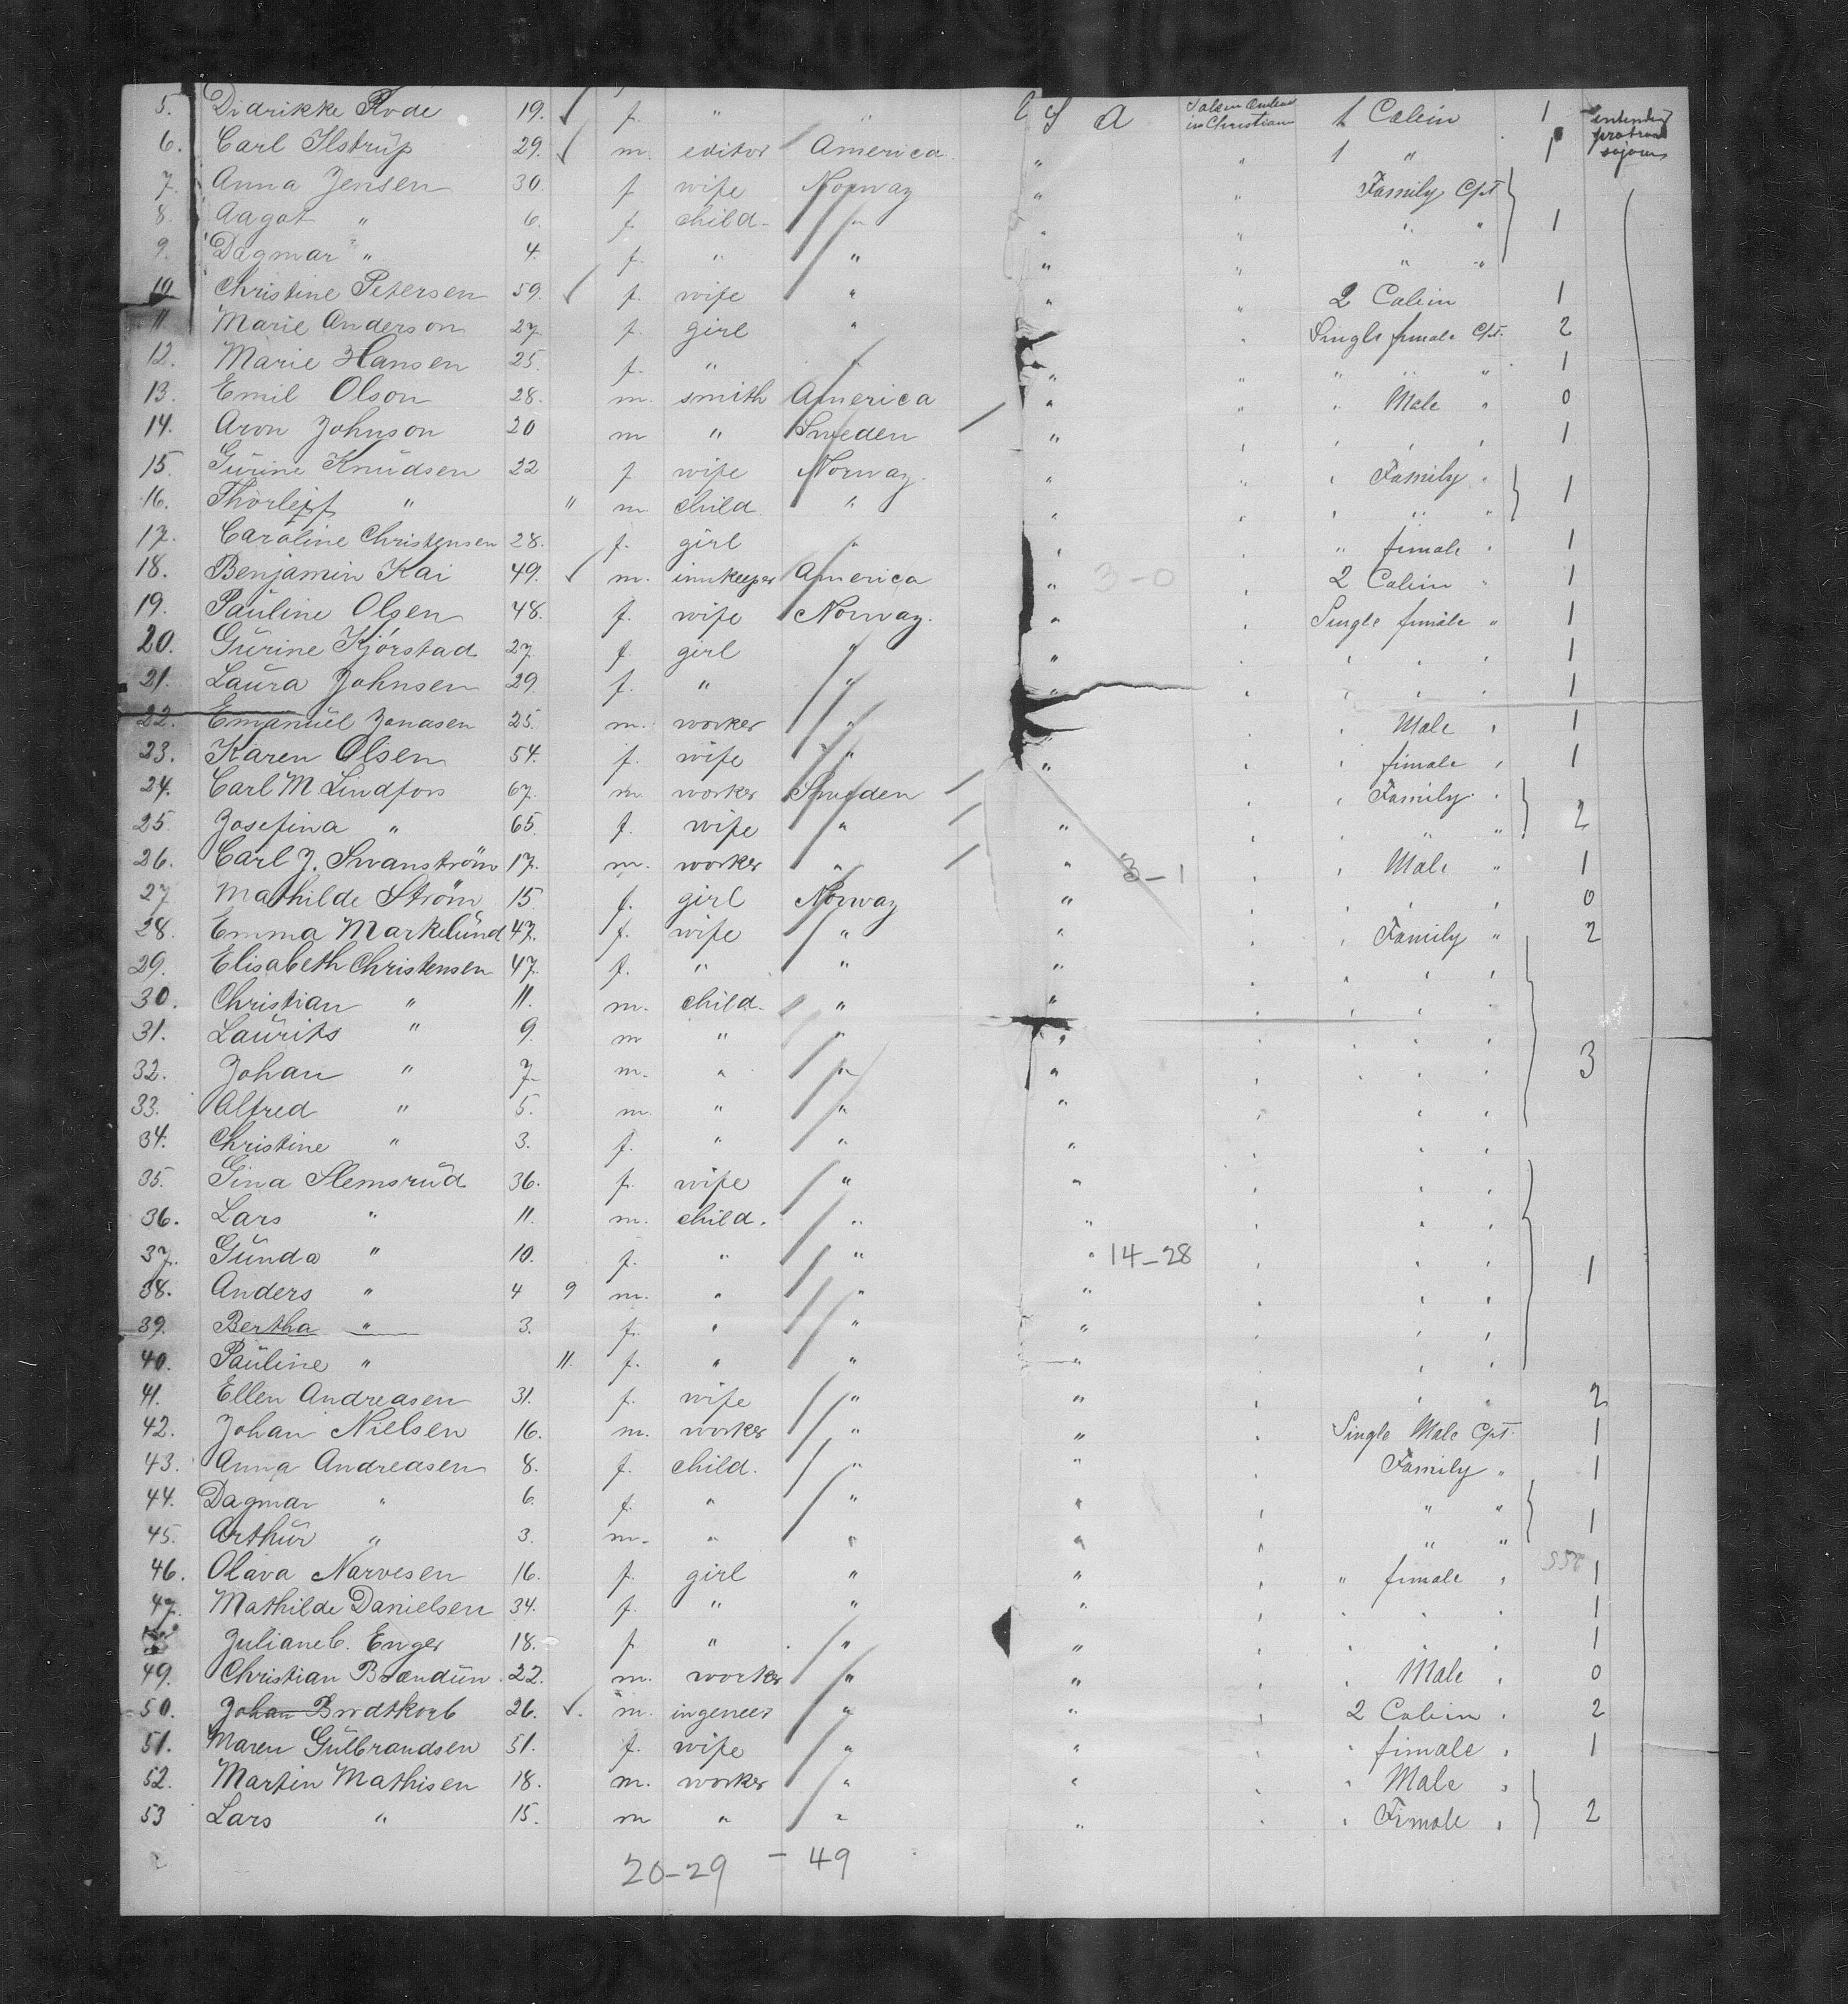 5. Didrikke Rode 19. ✓ f. " " U S A 1 Cabin 1 intending protract sojourn
6. Carl Ilstrup 29. ✓ m. editor America " " 1 " 1
7. Anna Jensen 30. f wife Norway " " Family Cpt
8. Aagot " 6. f. child " " " " " 1
9. Dagmar " 4. f. " " " " " "
10 Christine Petersen 59. ✓ f. wife " " " 2 Cabin 1
11. Marie Anderson 27 f. girl " " Single female Cpt. 2
12. Marie Hansen 25. f. " " " " " " " 1
13. Emil Olson 28. m. smith America " " " Male " 0
14. Aron Johnson 20 m " Sweden " " " " " 1
15. Gŭrine Knŭdsen 22 f wife Norway. " " " Family "
16. Thorleif " " m child " " " " " " 1
17. Caroline Christensen 28. f. girl " " " " female " 1
18. Benjamin Kai 49. ✓ m. innkeeper America " 3-0 " 2 Cabin " 1
19. Paŭline Olsen 48. f. wife Norway. " " Single female " 1
20. Gŭrine Kjórstad 27 f. girl " " " " " " 1
21. Laŭra Johnsen 29 f. " " " " " " " 1
22. Emanŭel Jonasen 25. m. worker " " " Male " 1
23. Karen Olsen 54. f. wife " " " " female " 1
24. Carl M Lindfors 67. m worker Sweden " " Family "
25. Josefina " 65. f. wife " " " " " " 2
26. Carl J. Swanström 17. m. worker " " 3-1 " " Male " 1
27 Mathilde Ström 15. f. girl Norway " " " " " 0
28. Emma Markelŭnd 47. f. wife " " " " Family " 2
29. Elisabeth Christensen 47. f. " " " " " " "
30. Christian " 11. m. child " " " " " "
31. Laŭrits " 9. m " " " " " " "
32. Johan " 7 m. " " " " " " " 3
33. Alfred " 5. m. " " " " " "
34. Christine " 3. f. " " " " " "
35. Gina Slemsrŭd 36. f. wife " " " " "
36. Lars " 11. m. child. " " " " "
37. Gŭnda " 10. f. " " " 14-28 " " "
38. Anders " 4 9 m. " " " " " " 1
39. Bertha " 3. f. " " " " " "
40. Paŭline " 11. f. " " " " " "
41. Ellen Andreasen 31. f. wife " " " " " 2
42. Johan Nielsen 16. m. worker " " " Single Male Cpt. 1
43. Anna Andreasen 8. f. child. " " " Family " 1
44. Dagmar " 6. f. " " " " " "
45. Arthŭr " 3. m. " " " " " " 1
46. Olava Narvesen 16. f. girl " " " " female " 1
47. Mathilde Danielsen 34. f. " " " " " " " 1
Juliane C. Enger 18. f " " " " " " " 1
49. Christian Brændŭn 22. m. worker " " " Male " 0
50. Johan Brodtkorb 26. ✓. m. ingeneer " " " 2 Cabin " 2
51. Maren Gŭlbrandsen 51. f. wife " " " " female " 1
52. Martin Mathisen 18. m. worker " " " " Male "
53 Lars " 15. m " " " " " Female " 2
20-29 - 49